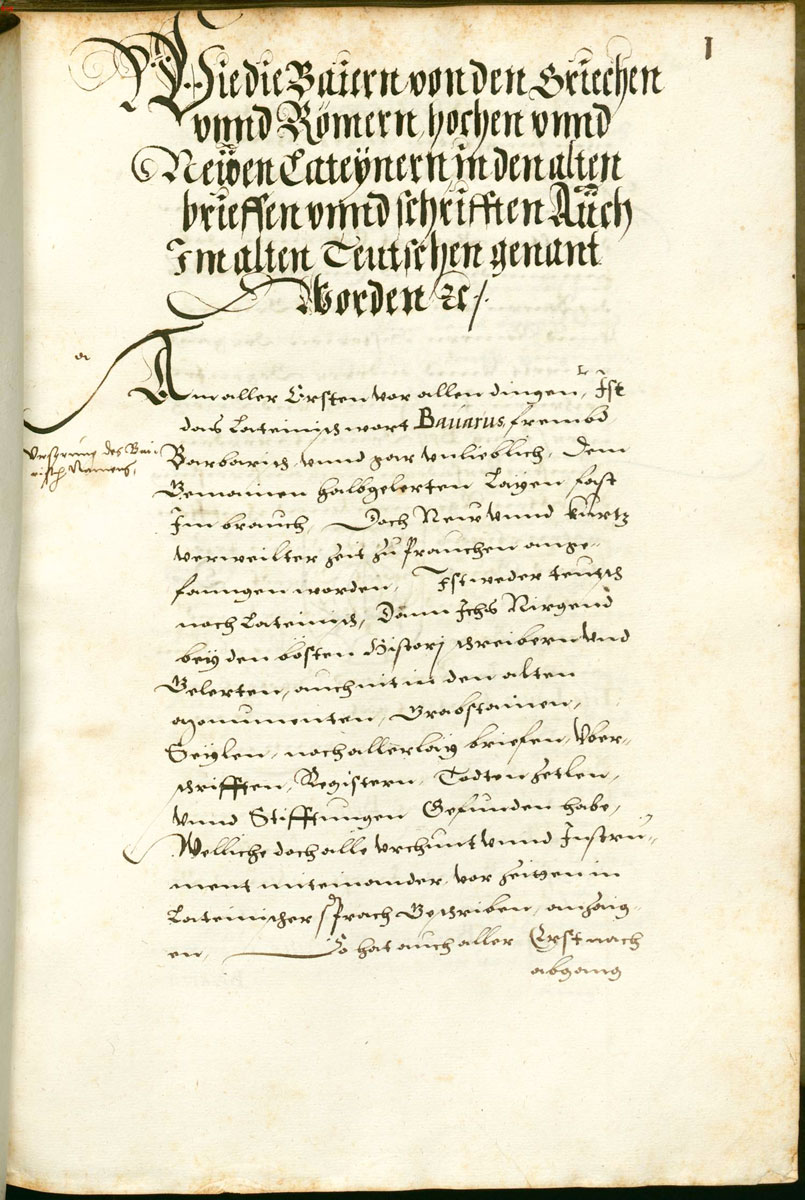 1
Wie die Baiern von den Griechen
vnnd Römern, hochen vnnd
Neẅen Lateÿnern in den alten
brieffen vnnd schrifften Auch
Im alten Teutschen genant
Worden ꝛc/.
a
Am aller Ersten vor allen dingen, Ist
das Lateinisch wort Bauarus, frembd
Vrsprung des Bai-
risch Namens,
Barbarisch, vnnd gar vnlieblich, Dem
Gemainen halbgelerten Layen fast
Im brauch Doch New vnnd kurtz
verweilter zeit zu prauchen ange-
fanngen worden, Ist weder teutsch
noch Lateinisch, Dann Ichs Nirgend
bey den bösten Historj schreibern vnd
Gelerten, auch nit in den alten
Monumenten, Grabstainen,
Seylen, noch allerlay briefen, Vber-
schrifften, Registern, Todten zetlen,
vnnd Stifftungen Gefunden habe,
Welliche doch alle vrchunt vnnd Instru-
ment miteinander, vor zeitgen in
Lateinischer sprach Geschriben, anzaig-
en, So hat auch aller Erst nach
abgang